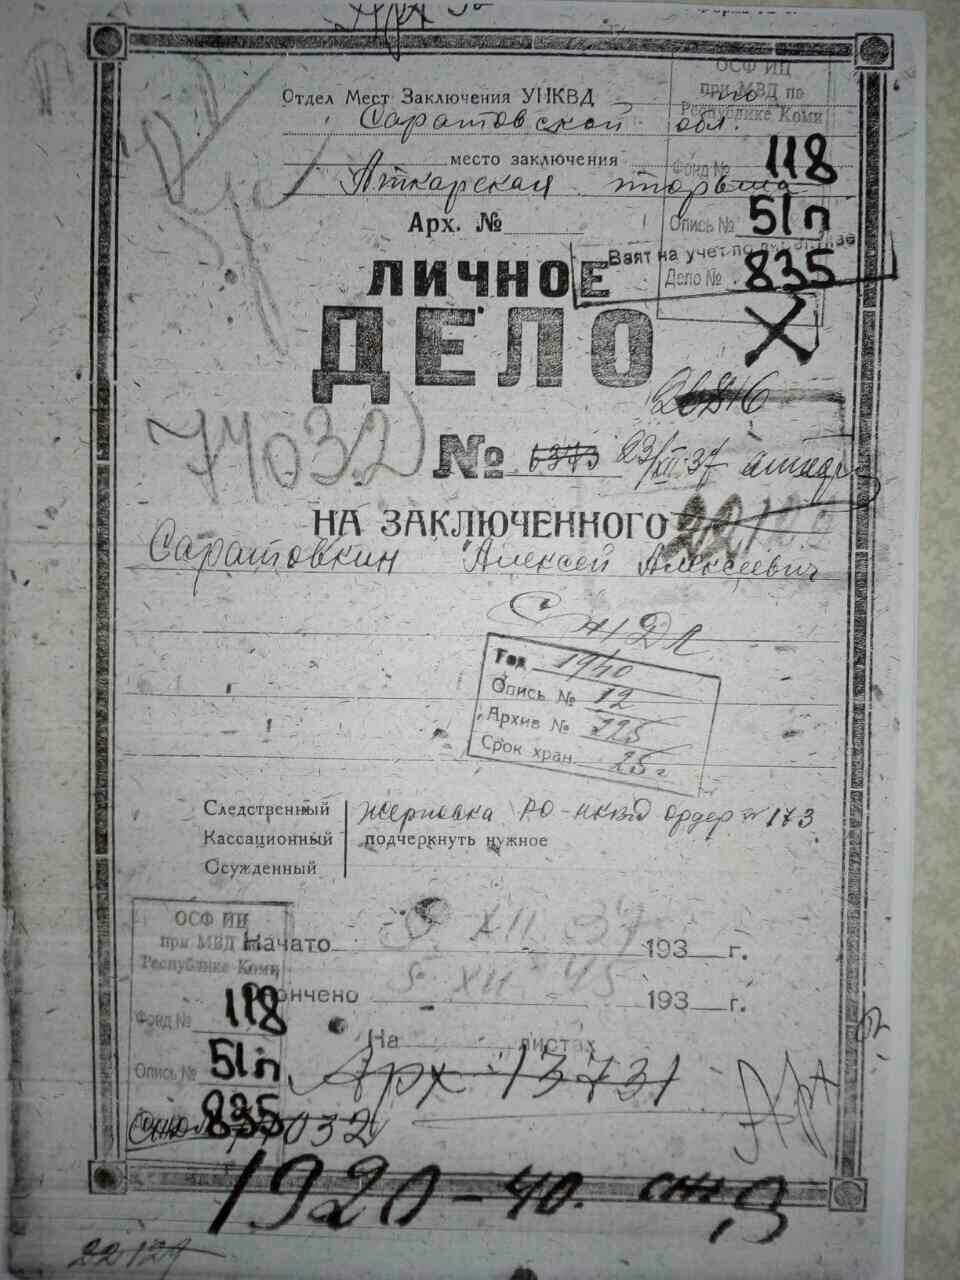 ОСФ ИЦ
при МВД по
Республике Коми
Отдел Мест Заключения УНКВД по
Саратовской обл.
место заключения
Аткарская тюрьма
Фонд № 118
Опись № 51п
Дело № 835
Арх. №
Взят на учет по
ЛИЧНОЕ
ДЕЛО
74032
№ 1373 23/XII-37
НА ЗАКЛЮЧЕННОГО
Саратовкин Алексей Алексеевич
СЖДЛ
Год 1940
Опись № 12
Архив № 225
Срок хран. 25 г.
Следственный
Кассационный
Осужденный
Жерновка РО-НКВД ордер № 173
подчеркнуть нужное
ОСФ ИЦ
при МВД по
Республике Коми
Фонд № 118
Опись № 51п
835
Начато 9 XII 37 193 г.
Окончено 9 XII 45 193 г.
На листах
Арх 13731
74032
Арх
1920-40. СЖ
22129